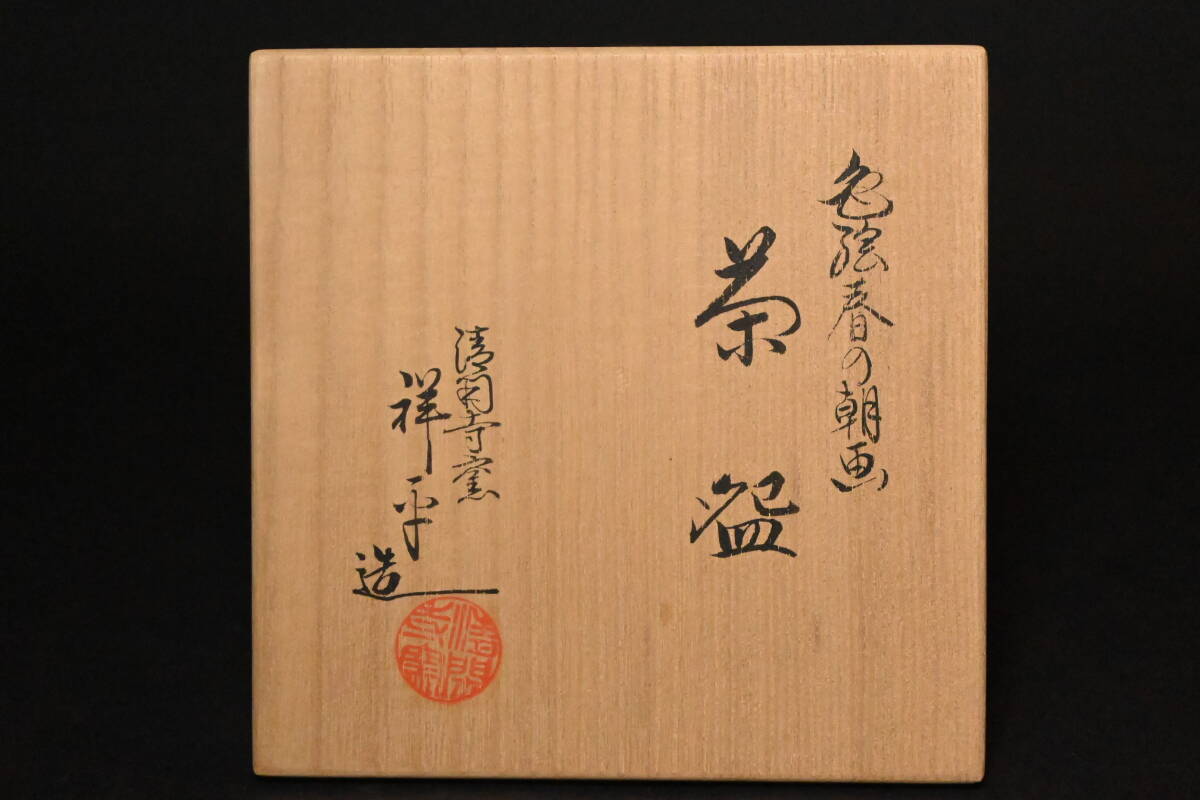 色絵春の朝画
茶盌
清閑寺窯
祥平
造